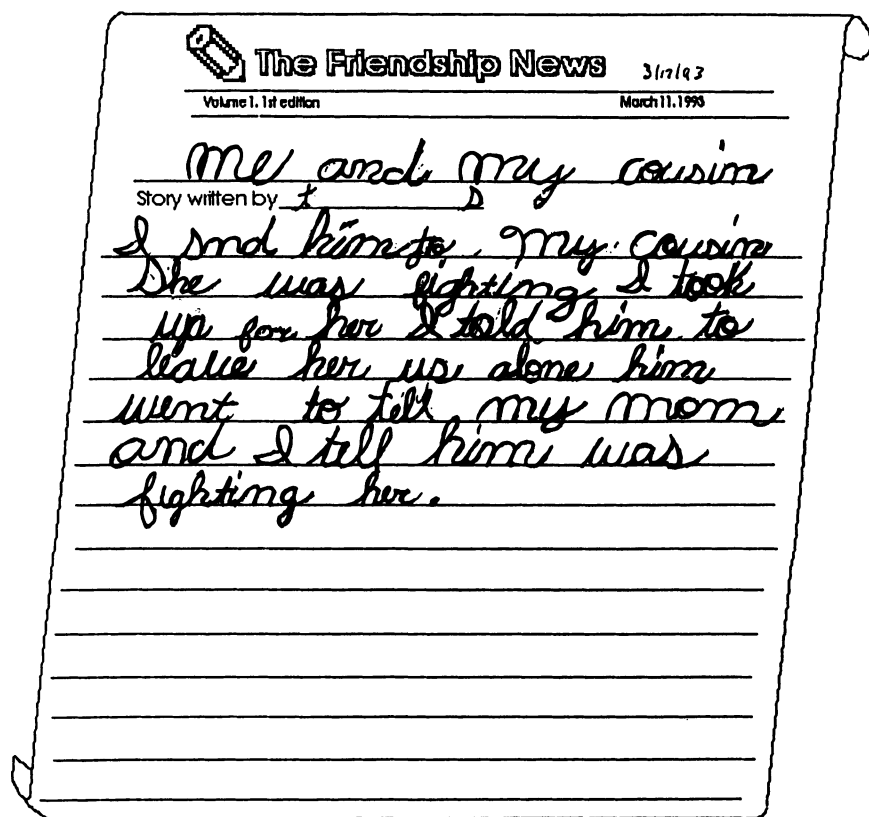 The Friendship News 3/17/93
Volume 1. 1st edition March 11. 1993
me and my cousin
Story written by t s
I snd him to my cousin
She was fighting I took
up for her I told him to
leave her us alone him
went to tell my mom
and I tell him was
fighting her.